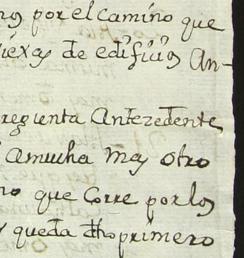 por el camino que
de edificios An-
Antezedente
a mucha mas otro
que Corre por los
y queda dho primero